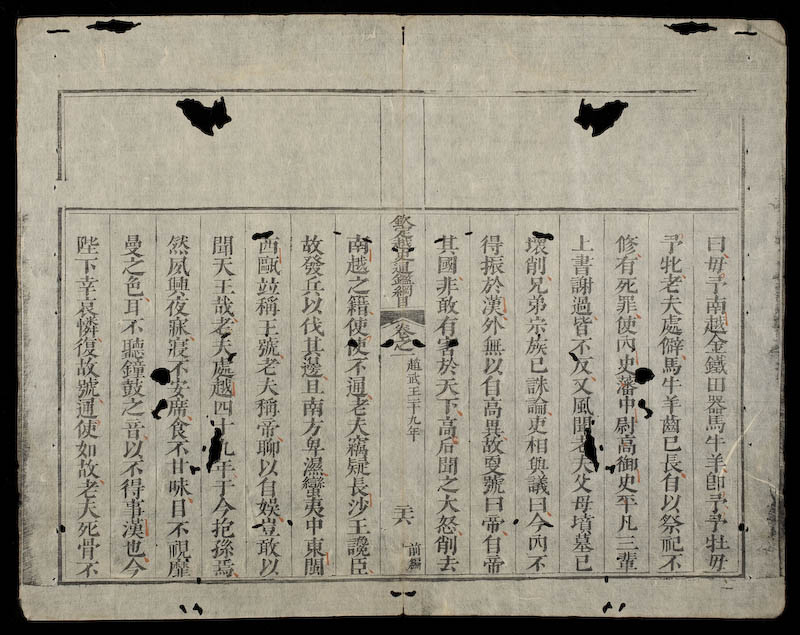 曰毋予南越金鐵田器馬牛羊卽予予牡毋
予牝老夫處僻馬牛羊齒已長有以祭祀不
修有死罪使內史藩中尉高御史平凡三輩
上書謝過皆不反又風聞老夫父母墳墓已
壞削兄弟宗族已誅論吏相與議曰今內不
得振於漢外無以自高異故更號曰帝自帝
其國非敢有害於天下高后聞之大怒削去
欽定越史通鑑綱目 卷之一 趙武王三十九年 二十六 前編
南越之籍使使不通老夫竊疑長沙王讒臣
故發兵以伐其邊且南方卑濕蠻夷中東閩
西甌竝稱王號老夫稱帝聊以自娛豈敢以
聞天王哉老夫處越四十九年于今抱孫焉
然夙興夜寐寢不安席食不甘味目不視靡
曼之色耳不聽鐘鼓之音以不得事漢也今
陛下幸哀憐復故號通使如故老夫死骨不